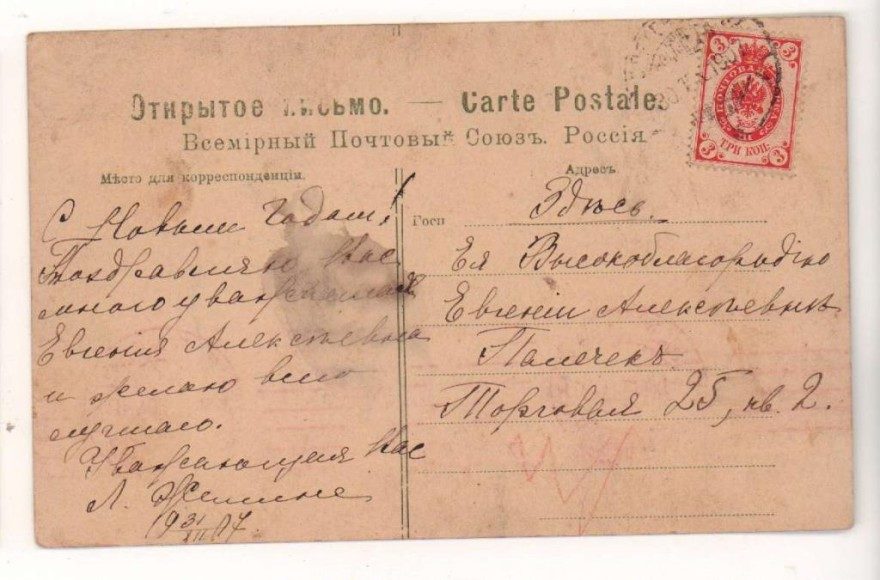 Открытое письмо. — Carte Postale.
Всемірный Почтовый Союзъ. Россія
Мѣсто для корреспонденціи.
Адресъ
С Новым Годом!
Поздравляю Вас
многоуважаемая
Евгения Алексѣевна
и желаю всего
лучшаго.
Уважающая Вас
Л.
19 31/XII 07.
Госп
Здѣсь.
Ея Высокоблагородію
Евгеніи Алексѣевнѣ
Палечекъ
Торговая 25, кв. 2.
3 3
ПОЧТОВАЯ
ТРИ КОП.
3 3